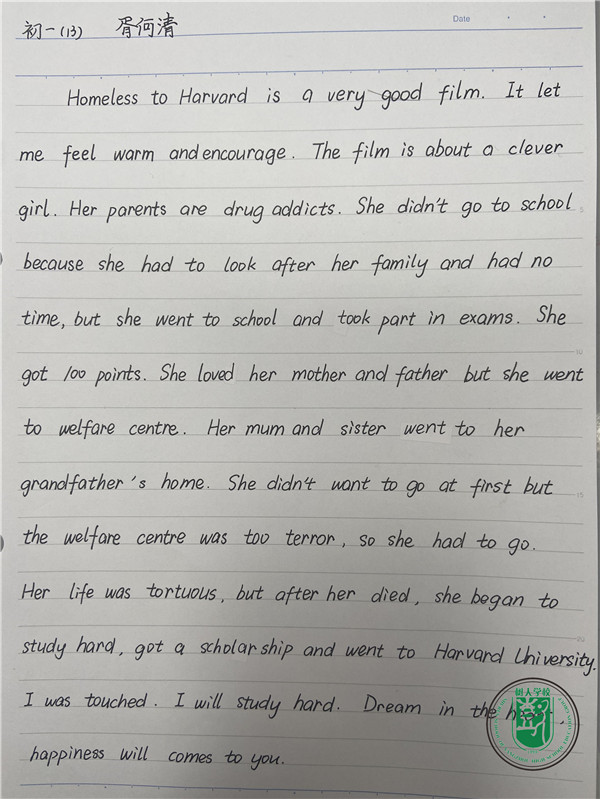 初一(13) 胥何清
Date
Homeless to Harvard is a very good film. It let
me feel warm and encourage. The film is about a clever
girl. Her parents are drug addicts. She didn't go to school
because she had to look after her family and had no
time, but she went to school and took part in exams. She
got 100 points. She loved her mother and father but she went
to welfare centre. Her mum and sister went to her
grandfather's home. She didn't want to go at first but
the welfare centre was too terror, so she had to go.
Her life was tortuous, but after her died, she began to
study hard, got a scholarship and went to Harvard University.
I was touched. I will study hard. Dream in the heart,
happiness will comes to you.
树人学校